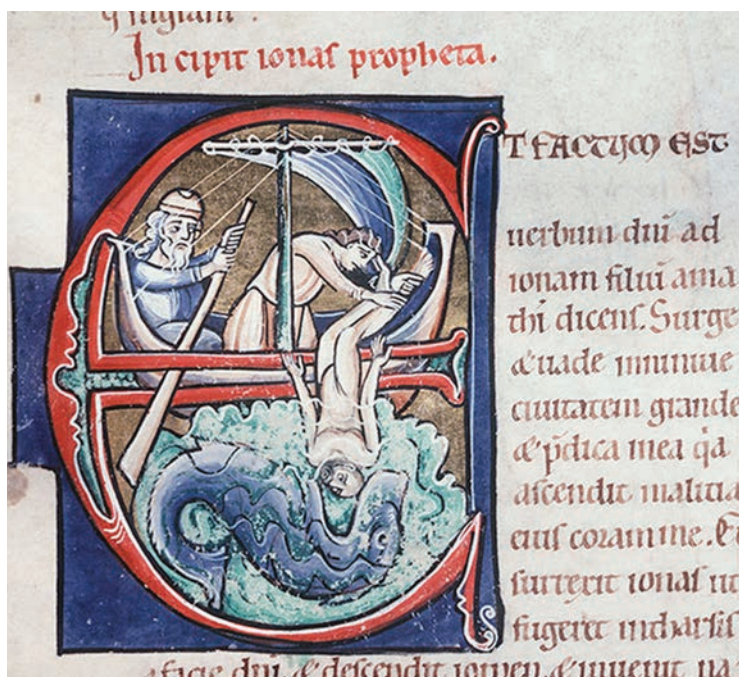 In cipit ionas propheta.
ET FACTUM EST
uerbum dn̄i ad
ionam filiū ama
thi dicens. Surge
& uade inniniue
ciuitatem grande
& p̄dica inea q̄a
ascendit malitia
eius coram me. Et
surrexit ionas ut
fugeret intharsis
a facie dn̄i & descendit ioppen & inuenit na